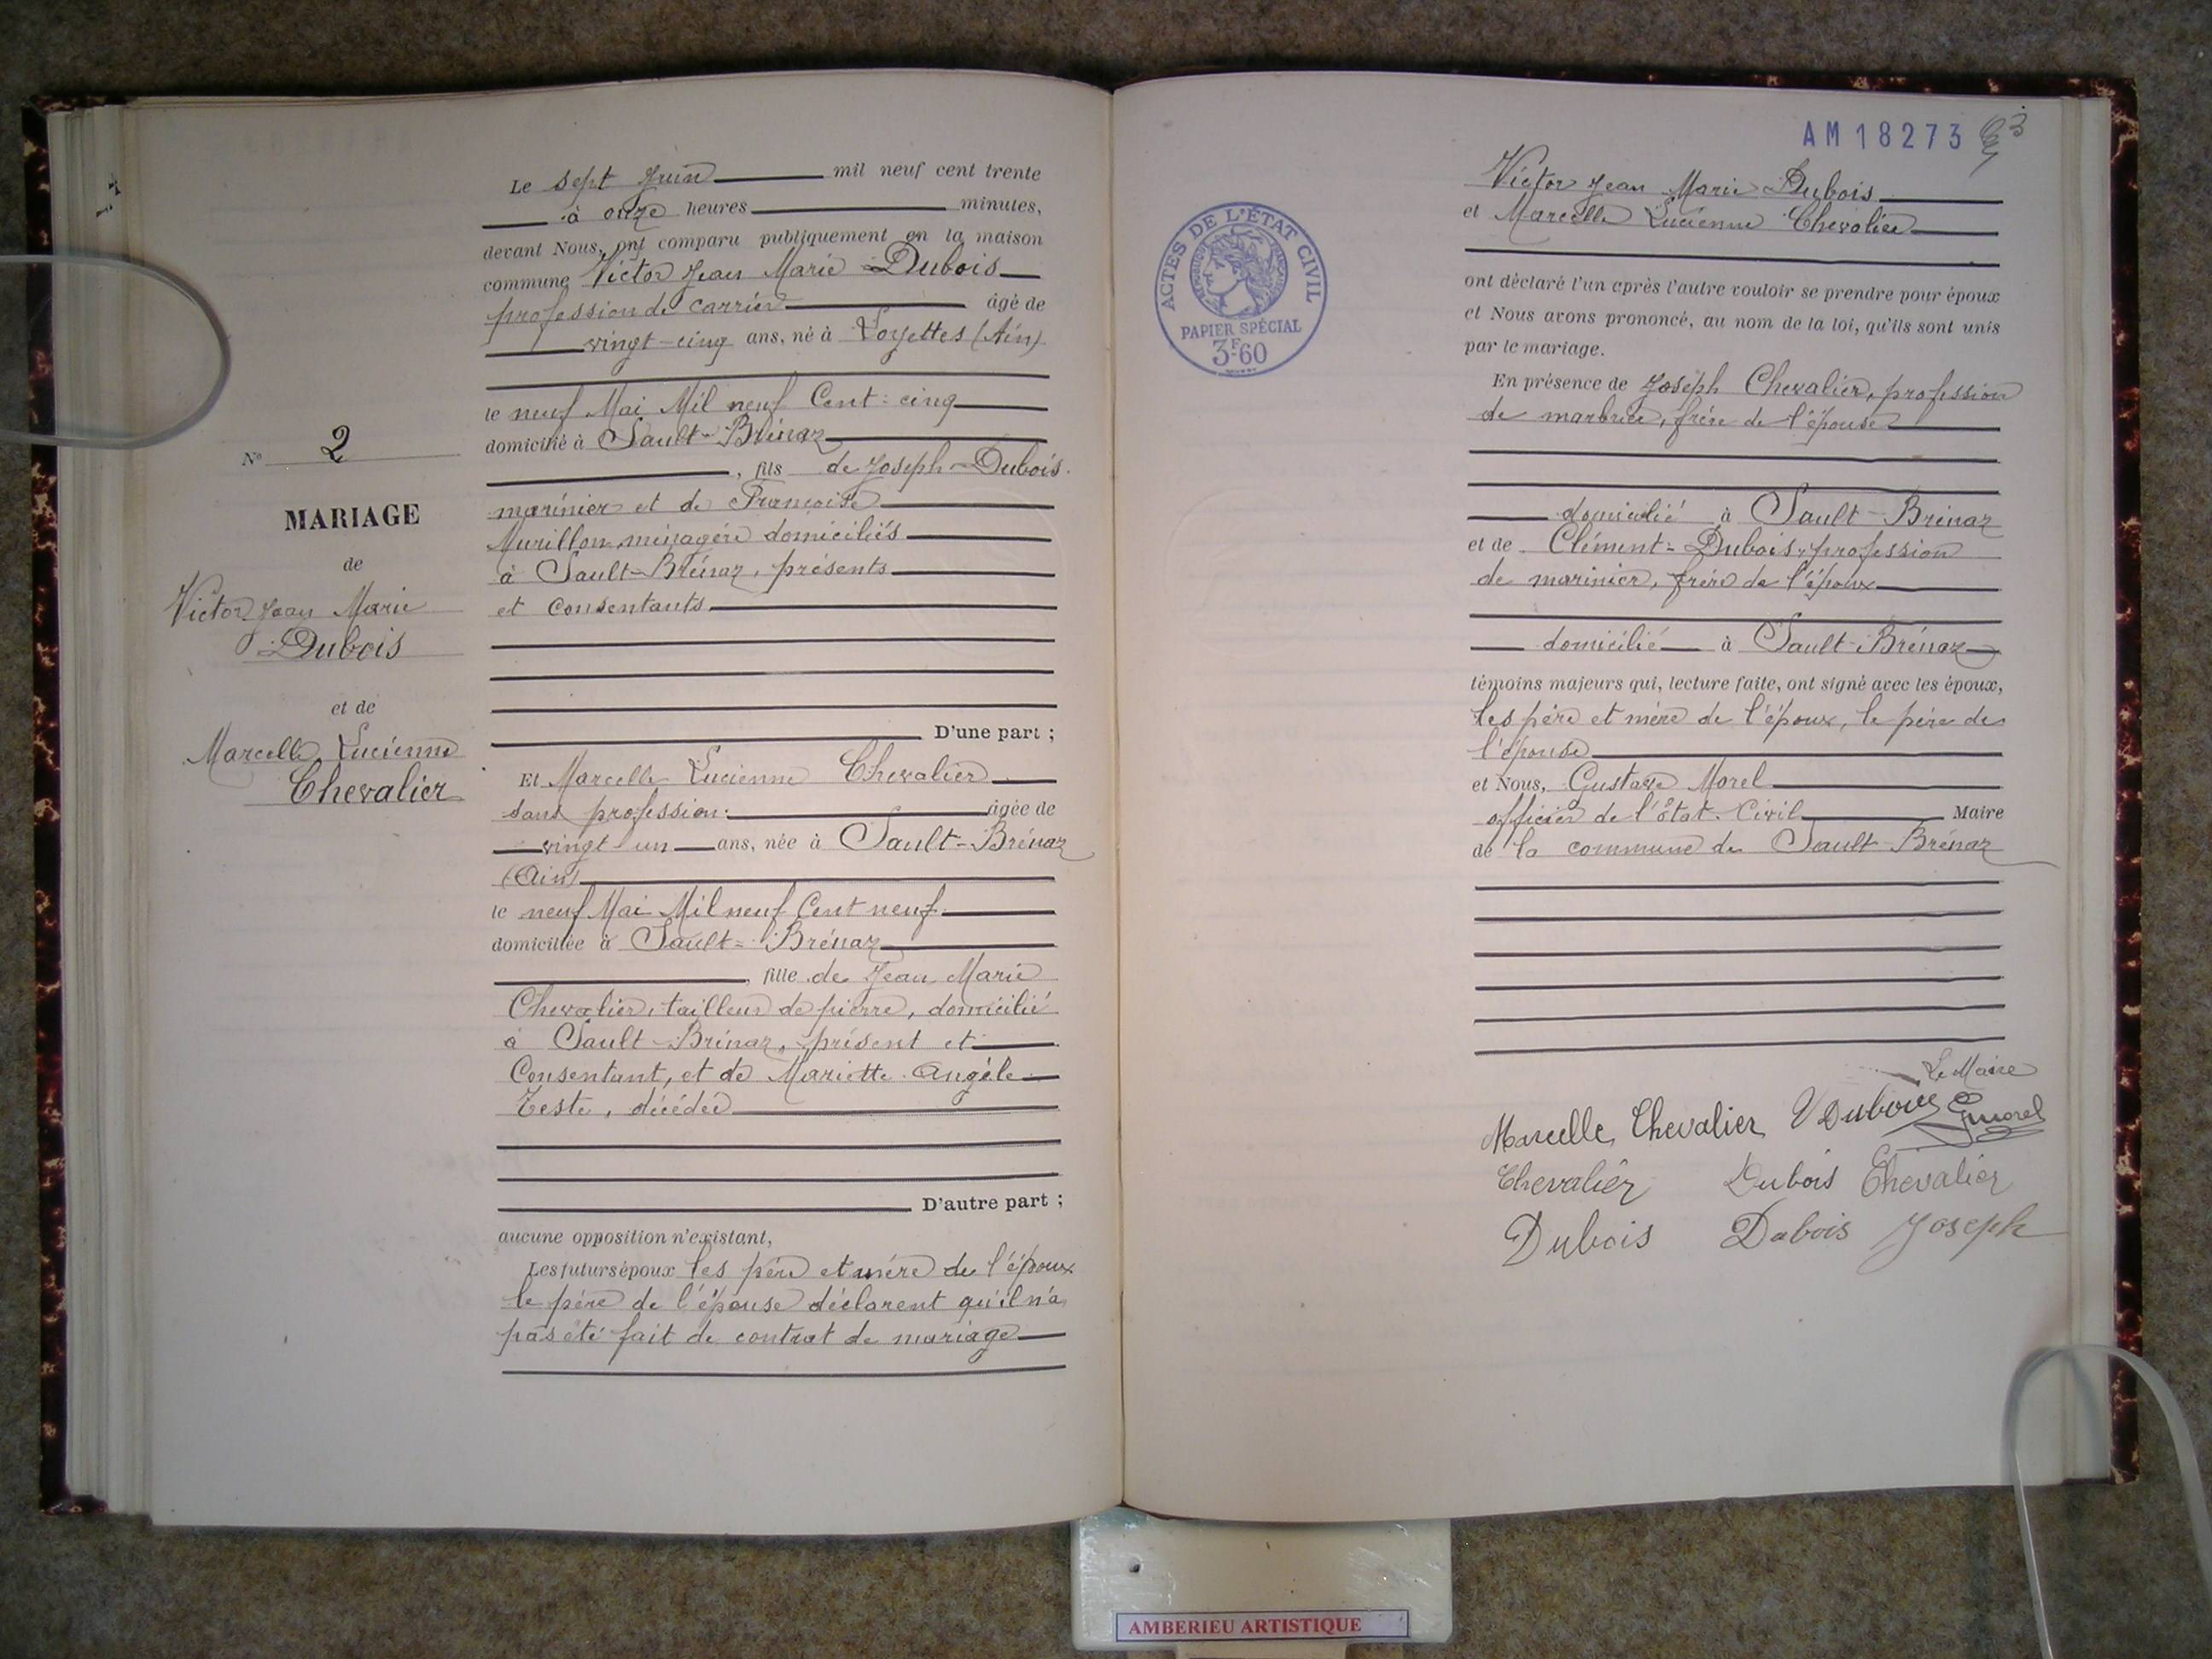 Le sept Juin mil neuf cent trente
à onze heures minutes,
devant Nous, ont comparu publiquement en la maison
commune Victor Jean Marie Dubois
profession de carrier âgé de
vingt-cinq ans, né à Loyettes (Ain)
le neuf Mai Mil neuf Cent-cinq
domicilié à Sault-Brénaz
, fils de Joseph Dubois
marinier et de Françoise
Murillon ménagère domiciliés
à Sault-Brénaz, présents
et Consentants
D'une part ;
Et Marcelle Lucienne Chevalier
sans profession âgée de
vingt-un ans, née à Sault-Brénaz
(Ain)
le neuf Mai Mil neuf Cent neuf
domiciliée à Sault-Brénaz
, fille de Jean Marie
Chevalier, tailleur de pierre, domicilié
à Sault-Brénaz, présent et
Consentant, et de Mariette Angèle
Teste, décédée
D'autre part ;
aucune opposition n'existant,
Les futurs époux les père et mère de l'époux
le père de l'épouse déclarent qu'il n'a
pas été fait de contrat de mariage
N° 2
MARIAGE
de
Victor Jean Marie
Dubois
et de
Marcelle Lucienne
Chevalier
AM 18273
ACTES DE L'ÉTAT CIVIL
RÉPUBLIQUE FRANÇAISE
PAPIER SPÉCIAL
3F60
Victor Jean Marie Dubois
et Marcelle Lucienne Chevalier
ont déclaré l'un après l'autre vouloir se prendre pour époux
et Nous avons prononcé, au nom de la loi, qu'ils sont unis
par le mariage.
En présence de Joseph Chevalier, profession
de marbrier, frère de l'épouse
domicilié à Sault-Brénaz
et de Clément Dubois, profession
de marinier, frère de l'époux
domicilié à Sault-Brénaz
témoins majeurs qui, lecture faite, ont signé avec les époux,
les père et mère de l'époux, le père de
l'épouse
et Nous, Gustave Morel
officier de l'état-Civil Maire
de la commune de Sault-Brénaz
Le Maire
Marcelle Chevalier VDubois GMorel
Chevalier Dubois Chevalier
Dubois Dubois Joseph
AMBERIEU ARTISTIQUE